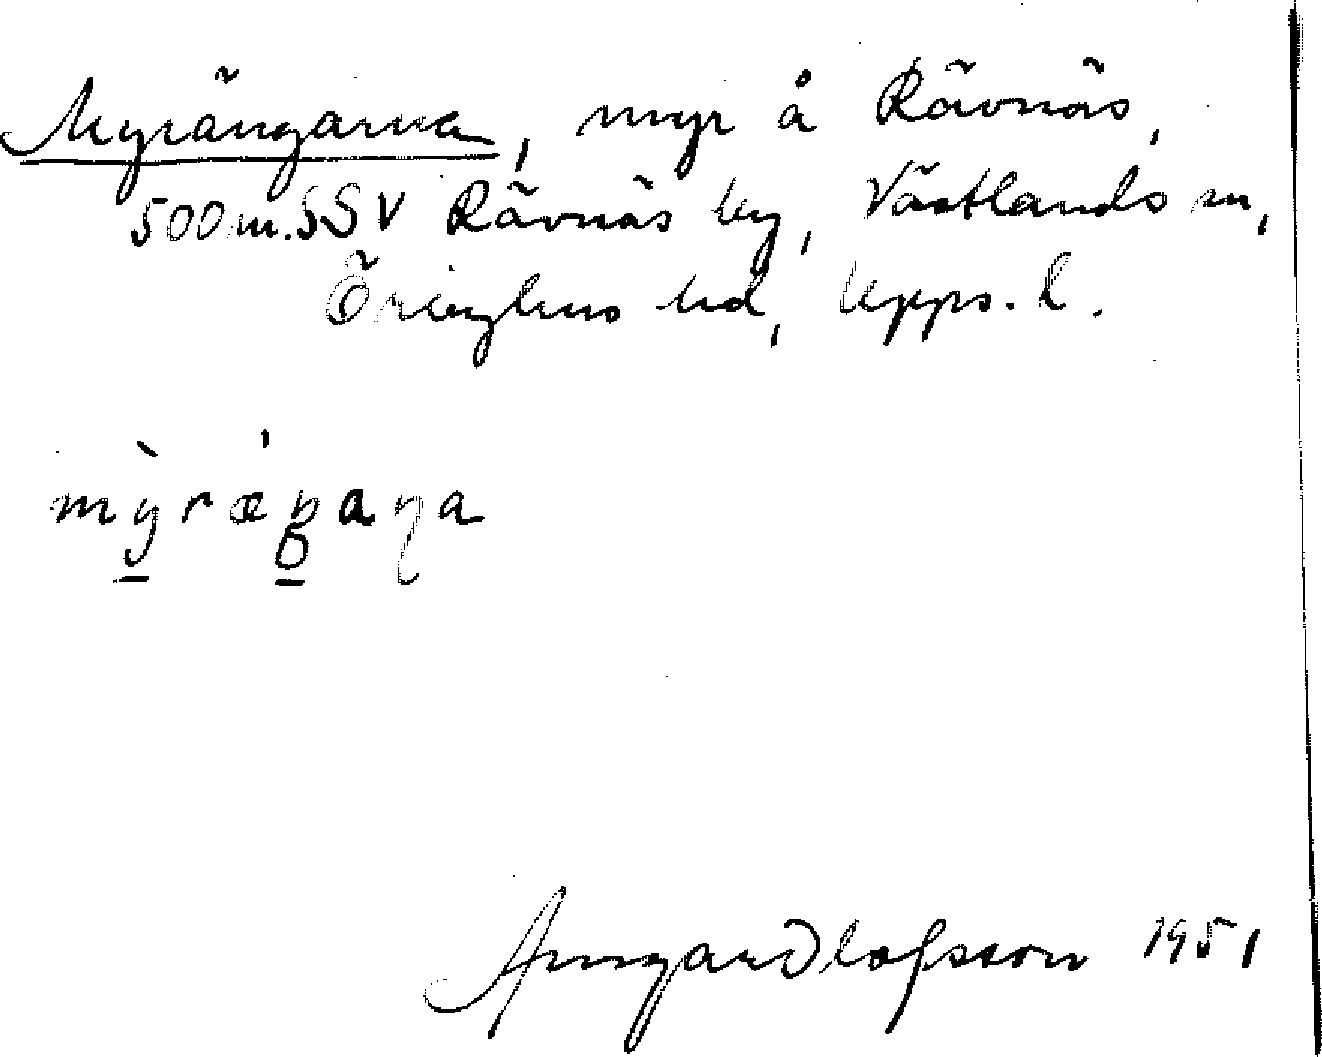 Myrängarna, myr å Rävnäs,
500 m. SSV Rävnäs by, Västlands sn,
Örbyhus hd, Upps. l.
Arngard Olofsson 1951